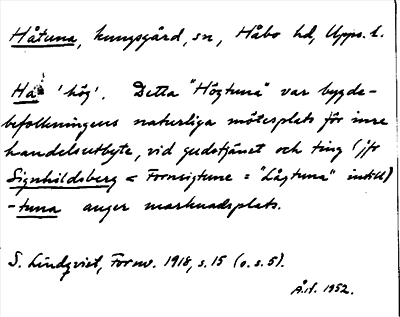 Håtuna, kungsgård, sn, Håbo hd, Upps. l.
Hå 'hög'. Detta "Högtuna" var bygde-
befolkningens naturliga mötesplats för inre
handelsutbyte, vid gudstjänst och ting (jfr
Signhildsberg < Fornsigtuna = "Lågtuna" intill)
-tuna anger marknadsplats.
S. Lindqvist, Fornv. 1918, s. 15 (o. s. 5).
1952.